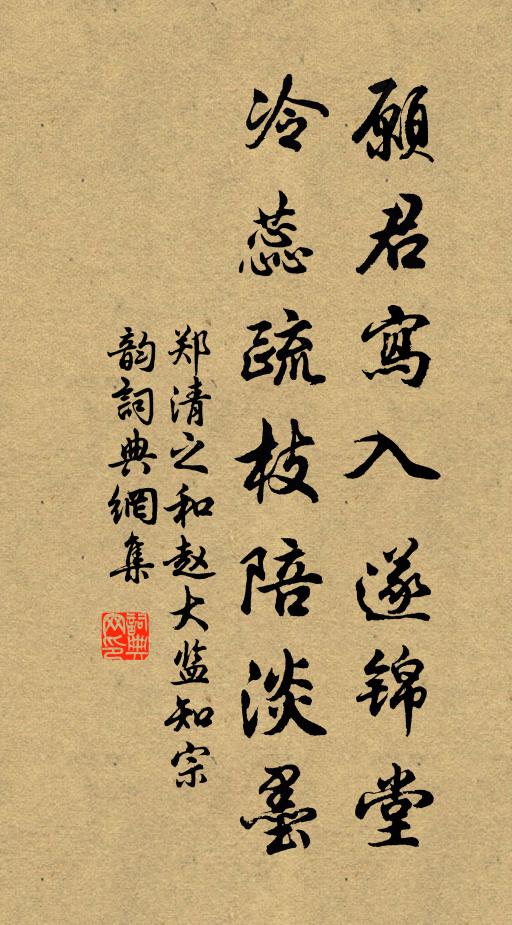 願君寫入遂錦堂
冷蕊疏枝陪淡墨
郑清之和赵大监知宗
韵詞典網集
詞典
网印